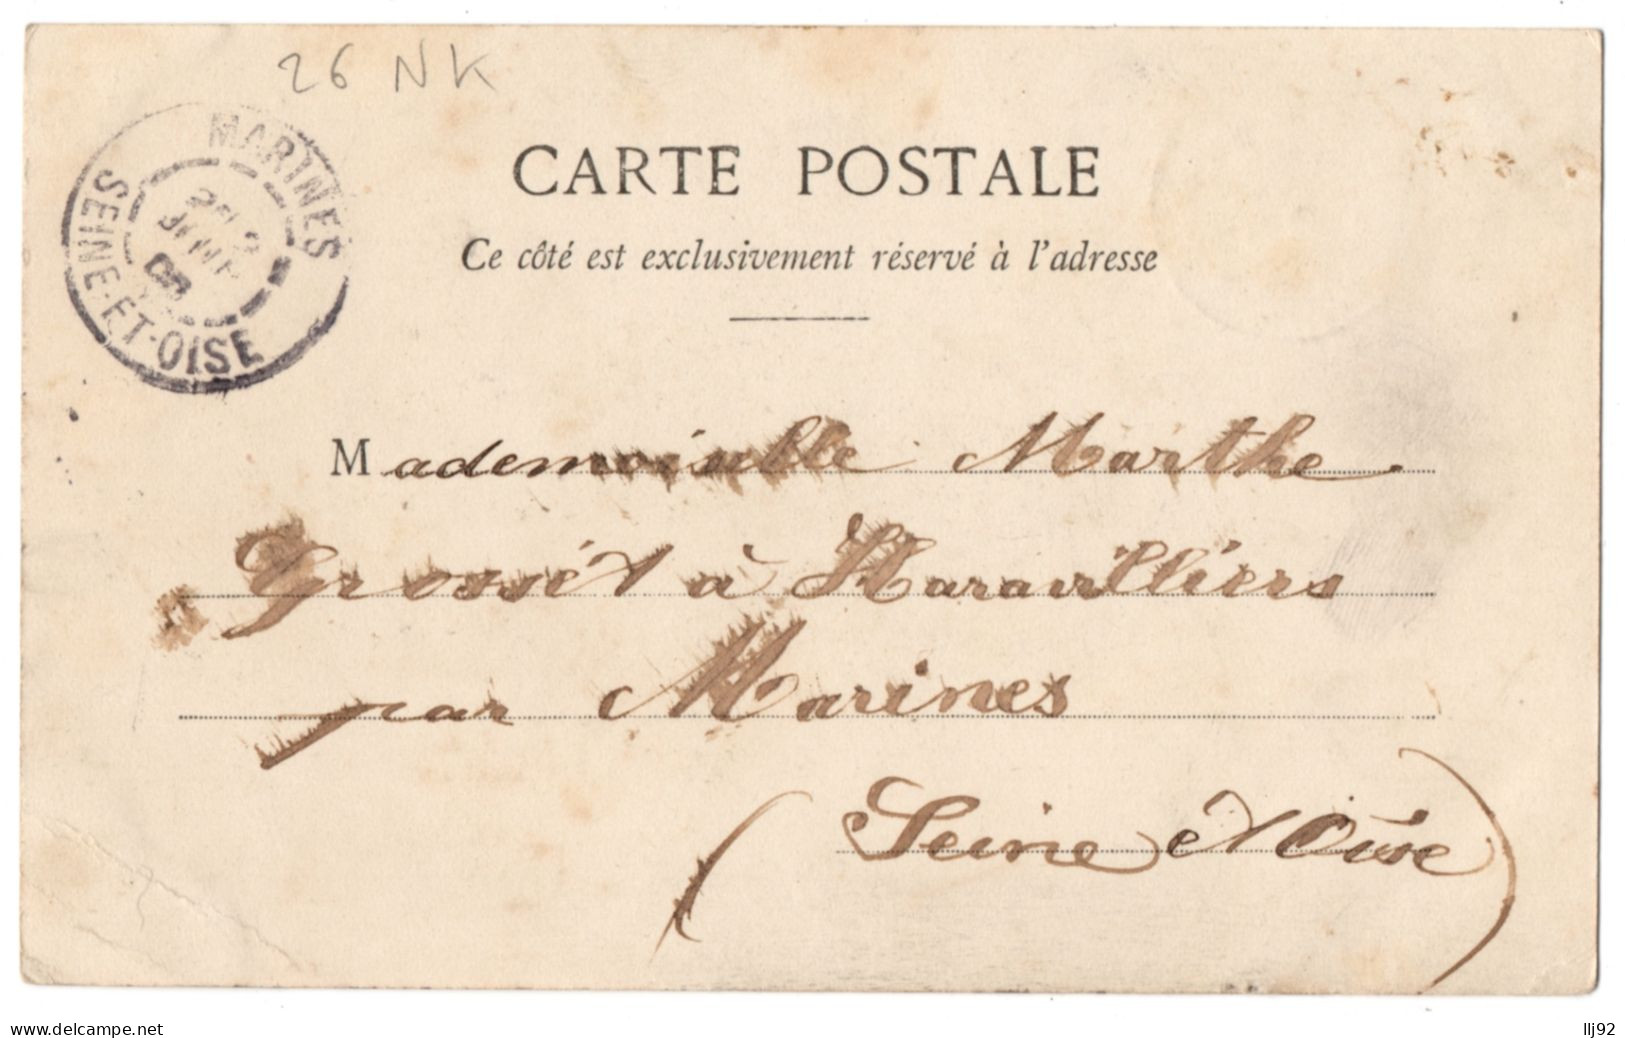 26 NK
MARINES
SEINE-ET-OISE
CARTE POSTALE
Ce côté est exclusivement réservé à l'adresse
Mademoiselle Marthe
Grossét à Haravilliers
par Marines
(Seine et Oise)
www.delcampe.net
llj92